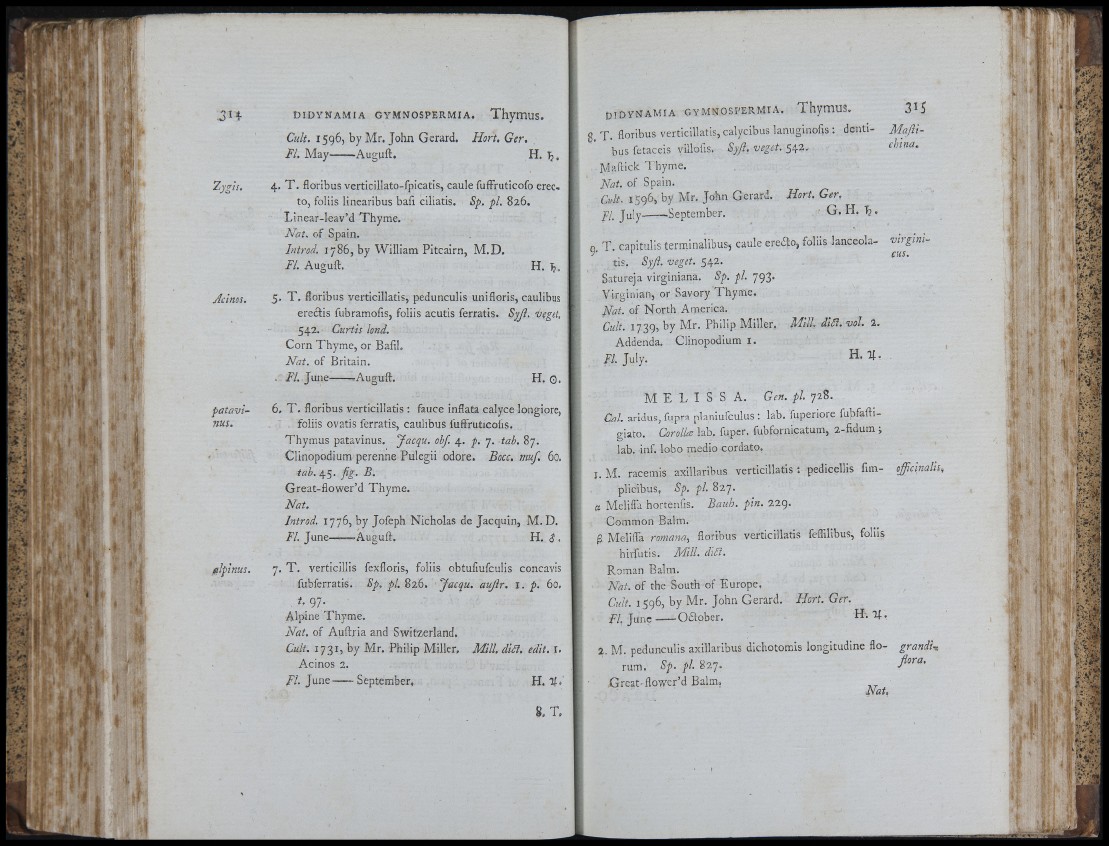 314 DIDYNAMIA GYMNOSPERMIA. Thymus.
Cult. 1596, by Mr. John Gerard. Hort. Ger.
Fl. May——Auguſt. H. ♄.
Zygis. 4. T. floribus verticillato-ſpicatis, caule ſuffruticoſo erec-
to, foliis linearibus baſi ciliatis. Sp. pl. 826.
Linear-leav'd Thyme.
Nat. of Spain.
Introd. 1786, by William Pitcairn, M.D.
Fl. Auguſt. H. ♄.
Acinos. 5. T. floribus verticillatis, pedunculis unifloris, caulibus
erectis ſubramoſis, foliis acutis ſerratis. Syſt. veget.
542. Curtis lond.
Corn Thyme, or Baſil.
Nat. of Britain.
Fl. June——Auguſt. H. ☉.
patavi- 6. T. floribus verticillatis : fauce inflata calyce longiore,
nus. foliis ovatis ſerratis, caulibus ſuffruticoſis.
Thymus patavinus. Jacqu. obſ. 4. p. 7. tab. 87.
Clinopodium perenne Pulegii odore. Bocc. muſ. 60.
tab. 45. fig. B.
Great-flower'd Thyme.
Nat.
Introd. 1776, by Joſeph Nicholas de Jacquin, M.D.
Fl. June——Auguſt. H. ♂.
alpinus. 7. T. verticillis ſexfloris, foliis obtuſiuſculis concavis
ſubſerratis. Sp. pl. 826. Jacqu. auſtr. 1. p. 60.
t. 97.
Alpine Thyme.
Nat. of Auſtria and Switzerland.
Cult. 1731, by Mr. Philip Miller. Mill. dict. edit. 1.
Acinos 2.
Fl. June—— September. H. ♃.
8. T.
DIDYNAMIA GYMNOSPERMIA. Thymus. 315
8. T. floribus verticillatis, calycibus lanuginoſis : denti- Maſti-
bus ſetaceis villoſis. Syſt. veget. 542. china.
Maſtick Thyme.
Nat. of Spain.
Cult. 1596, by Mr. John Gerard. Hort. Ger.
Fl. July——September. G. H. ♄.
9. T. capitulis terminalibus, caule erecto, foliis lanceola- virgini-
tis. Syſt. veget. 542. cus.
Satureja virginiana. Sp. pl. 793.
Virginian, or Savory Thyme.
Nat. of North America.
Cult. 1739, by Mr. Philip Miller. Mill. dict. vol. 2.
Addenda. Clinopodium 1.
Fl. July. H. ♃.
MELISSA. Gen. pl. 728.
Cal. aridus, ſupra planiuſculus : lab. ſuperiore ſubfaſti-
giato. Corollæ lab. ſuper. ſubfornicatum, 2-fidum ;
lab. inf. lobo medio cordato.
1. M. racemis axillaribus verticillatis : pedicellis ſim- officinalis.
plicibus. Sp. pl. 827.
α Meliſſa hortenſis. Bauh. pin. 229.
Common Balm.
β Meliſſa romana, floribus verticillatis ſeſſilibus, foliis
hirſutis. Mill. dict.
Roman Balm.
Nat. of the South of Europe.
Cult. 1596, by Mr. John Gerard. Hort. Ger.
Fl. June —— October. H. ♃.
2. M. pedunculis axillaribus dichotomis longitudine flo- grandi-
rum. Sp. pl. 827. flora.
Great-flower'd Balm.
Nat.